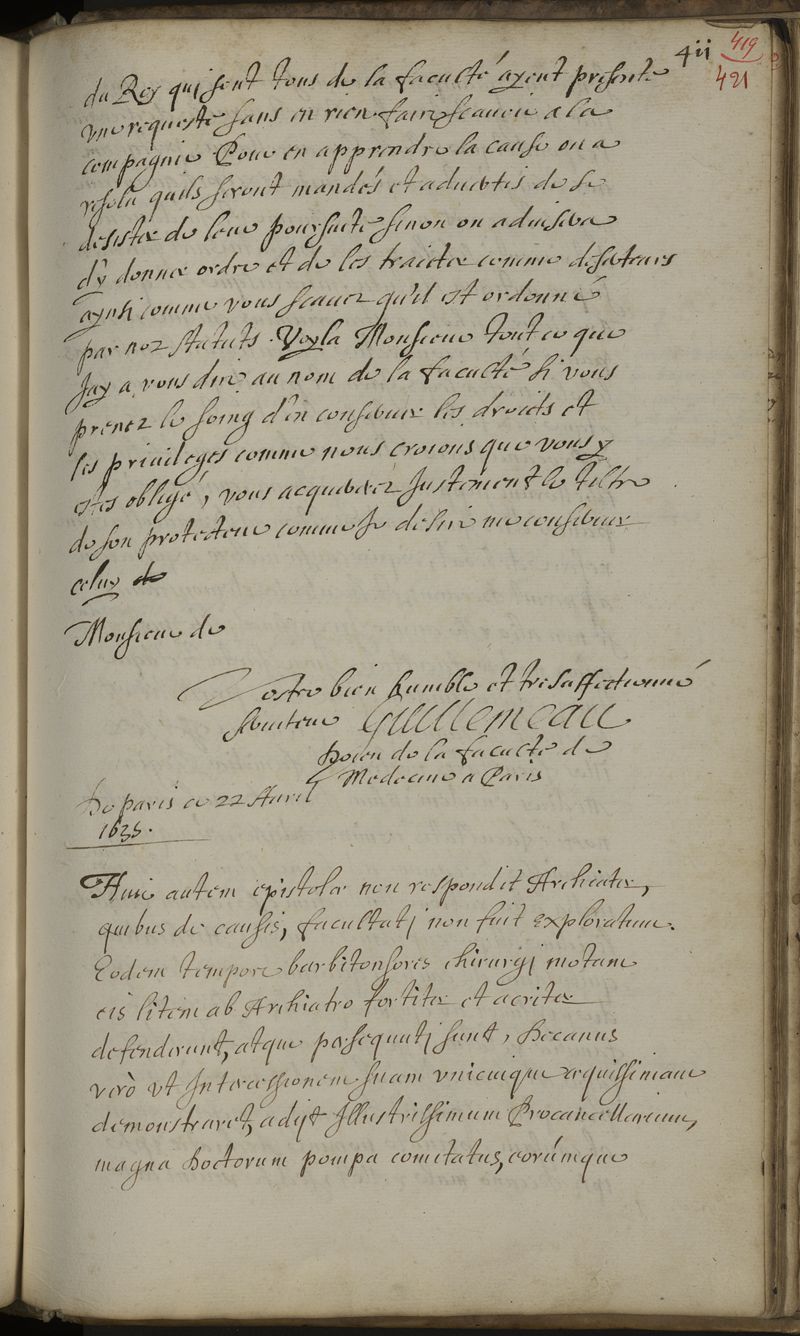 4ii
419
421
du Roy qui sont tous de la faculté ayent presenté
vne requeste sans en rien faire scauoir a la
compagnie Pour en apprendre la cause on a
resolu quils seront mandés et aduertis de se
desister de leur poursuite sinon on aduisera
d'y donner ordre et de les traicter comme deserteurs
aynsi comme vous scauez qu'il est ordonné
par noz statuts. Voyla Monsieur tout ce que
Jay a vous dire au nom de la faculté si vous
prenez le soing d'en conseruer les droicts et
les priuileges comme nous croions que vous y
estes obligé, vous acquererez Justement le tiltre
de son protecteur comme Je desire me conseruer
celuy de
Monsieur de
Vostre bien humble et tres affectionné
seruiteur Guillemeau
Doien de la faculté de
Medecine a Paris
De paris ce 22 Auril
1635.
Huic autem epistolæ non respondit Archiater,
quibus de causis, facultatj non fuit exploratum.
Eodem tempore barbitonsores chirurgj motam
eis litem ab Archiatro fortiter et acriter
defenderunt, atque persequutj sunt, Decanus
verò vt Intercessionem suam vnicuique æquissimam
demonstraret, adijt Illustrissimum Procancellarium,
magna Doctorum pompa comitatus, eorúmque